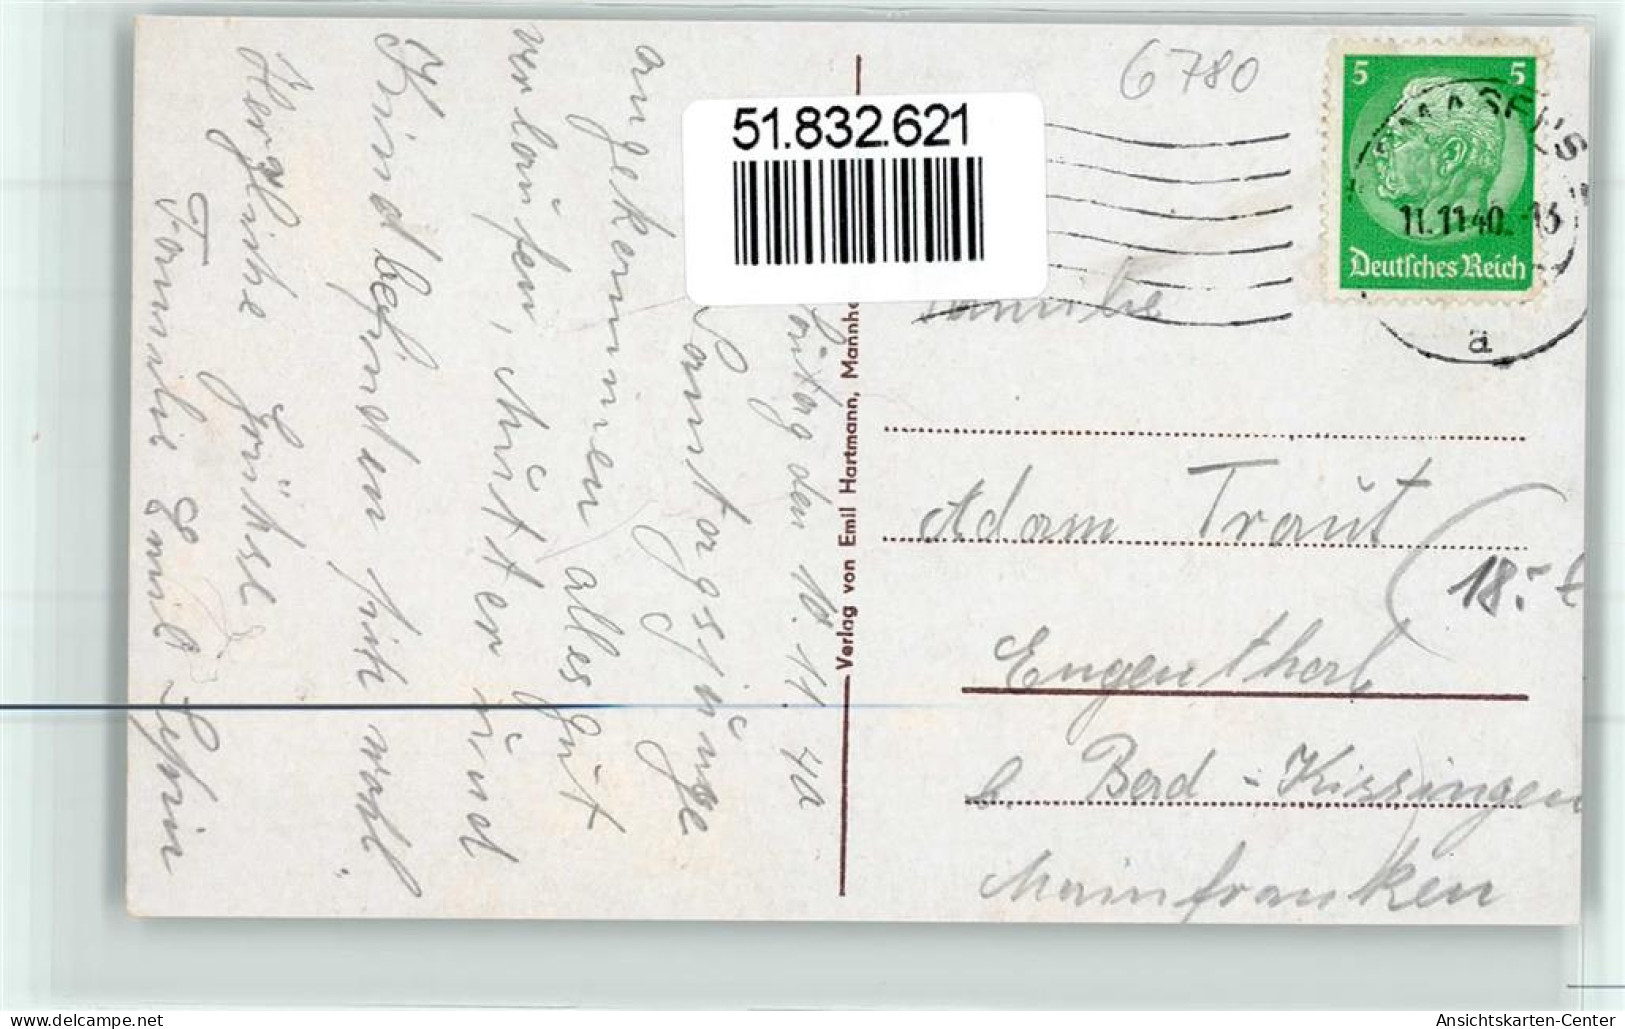 6780
51.832.621
5 5
Deutsches Reich
MASENS
11.11.40.
a
den 10. 11. 40
Sonntagsjunge
angekommen alles gut
verlaufen, Mutter und
Kind befinden sich wohl.
Herzliche Grüße
Familie Emil Lehm
Verlag von Emil Hartmann, Mannhe
Familie
Adam Traut
18.-
Engenthal
b. Bad-Kissingen
Mainfranken
delcampe.net
Ansichtskarten-Center